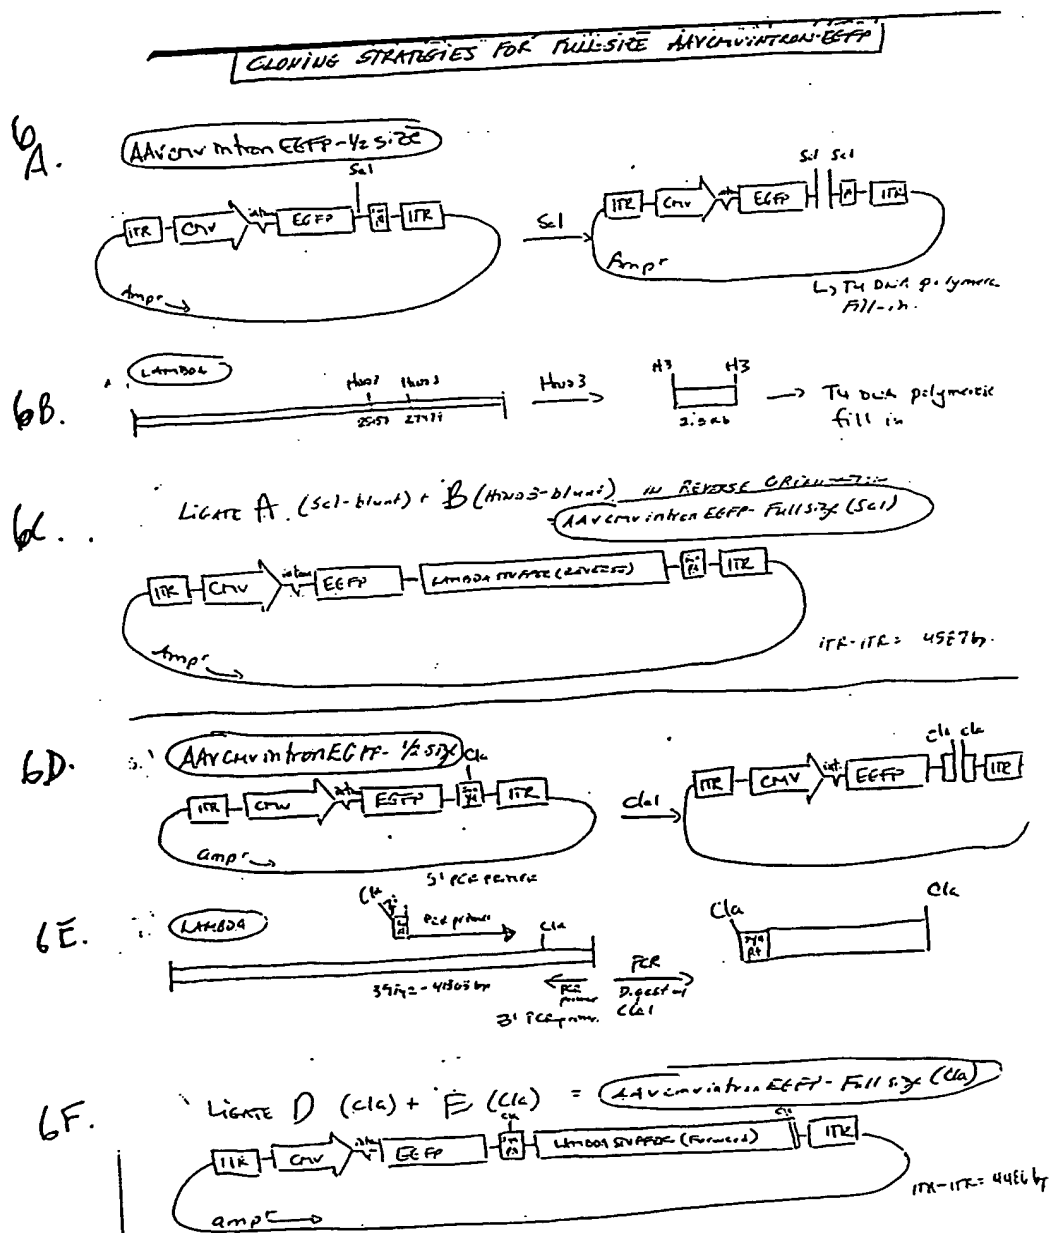 CLONING STRATEGIES FOR FULL-SIZE AAVCMVINTRON-EGFP
6A.
AAVCMV intron EGFP-1/2 size
Sal
ITR CMV int EGFP ITR
Ampr
Sal
Sal Sal
ITR CMV int EGFP ITR
Ampr
T4 DNA polymerase
Fill-in.
6B.
LAMBDA
Hind3 Hind3
Hind3
H3 H3
T4 DNA polymerase
fill in
6C.
LIGATE A (Sal-blunt) + B (Hind3-blunt) IN REVERSE ORIENTATION
= AAVCMV intron EGFP-Full size (Sal)
ITR CMV intron EGFP LAMBDA STUFFER (REVERSE) ITR
Ampr
ITR-ITR =
6D.
AAVCMV intron EGFP-1/2 size
Cla
ITR CMV int EGFP ITR
ampr
ClaI
Cla Cla
ITR CMV int EGFP ITR
5' PCR PRIMER
6E.
LAMBDA
Cla
PCR primer
Cla
PCR primer
3' PCR primer.
PCR
Digest w/
ClaI
Cla Cla
6F.
LIGATE D (Cla) + E (Cla) = AAVCMV intron EGFP-Full size (Cla)
Cla
Cla
ITR CMV int EGFP LAMBDA STUFFER (Forward) ITR
ampr
ITR-ITR = 4486 bp